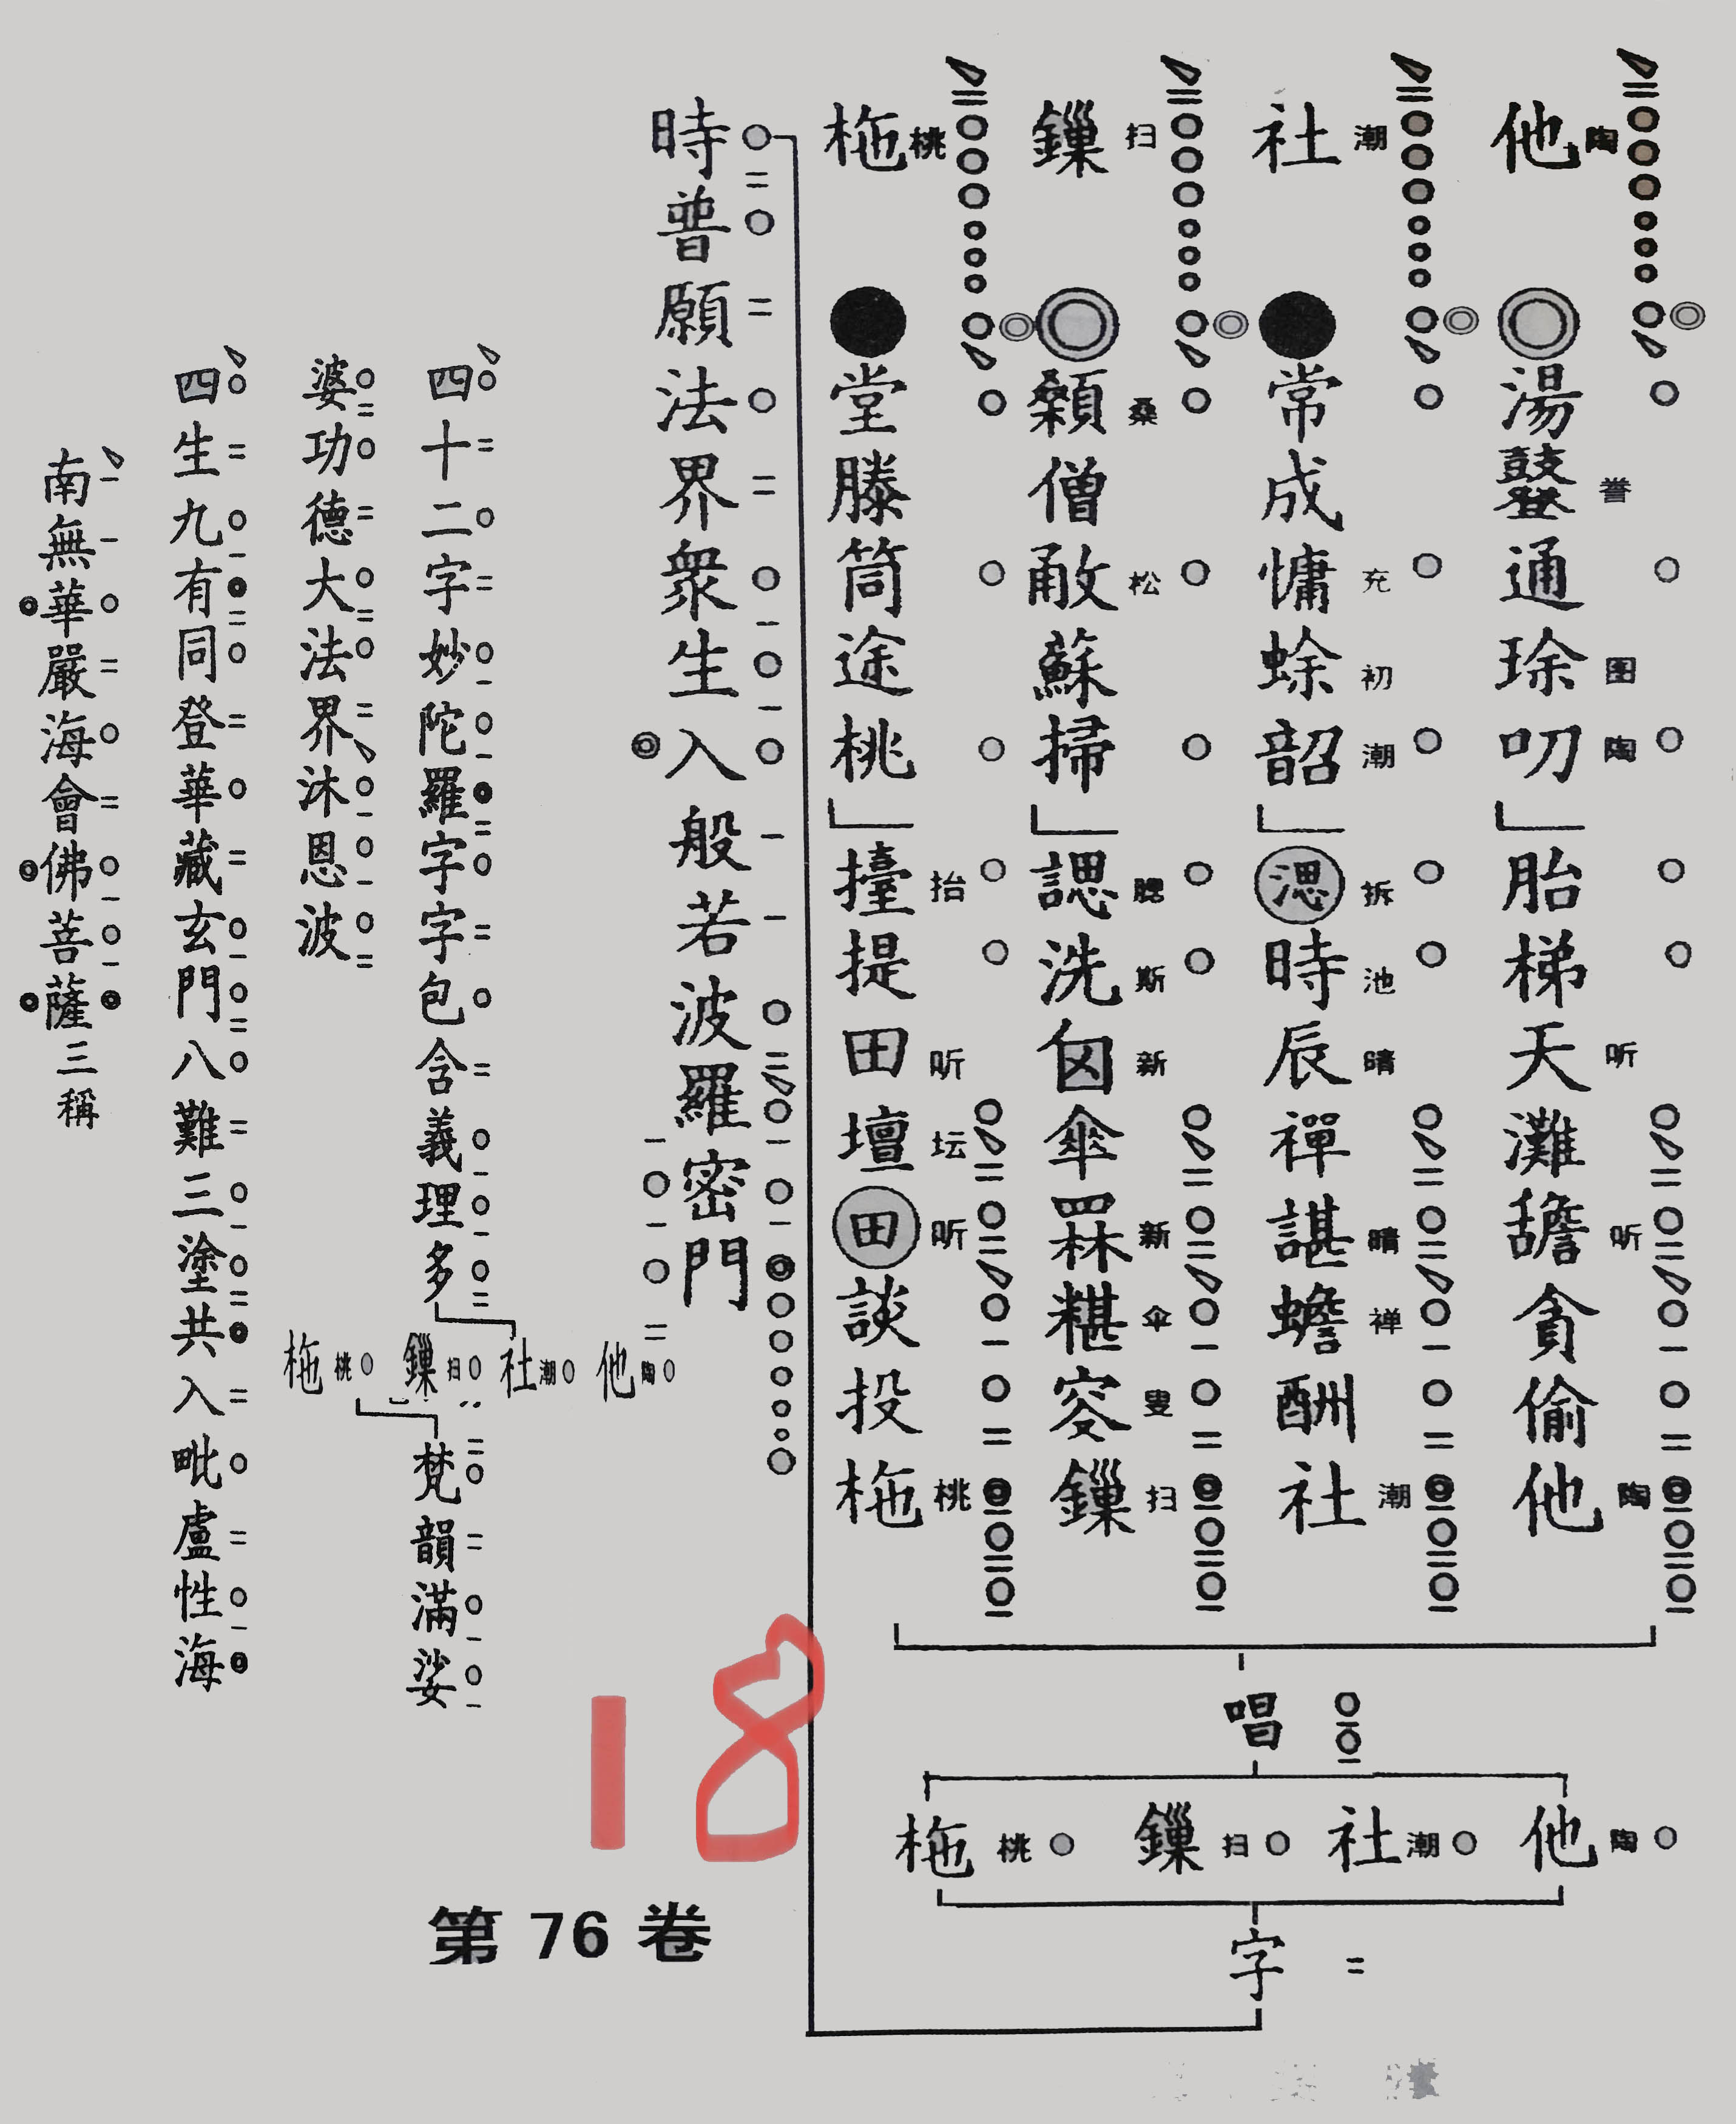 他陶 湯鼟誉通瑹图叨陶 胎梯天听灘䜛听貪偷他陶
社潮 常成慵充蜍初韶潮 漗拆時池辰晴禪諶晴蟾禅酬社潮
鏁扫 顙桑僧㪟松蘇掃 諰腮洗斯囟新傘罧新糂伞叜叟鏁扫
柂桃 堂滕筒途桃 擡抬提田听壇坛田听談投柂桃
唱
他陶 社潮 鏁扫 柂桃
字
時普願法界衆生入般若波羅密門
四十二字妙陀羅字字包含義理多
他陶 社潮 鏁扫 柂桃
梵韻滿娑
婆功德大法界沐恩波
四生九有同登華藏玄門八難三塗共入毗盧性海
南無華嚴海會佛菩薩三稱
18
第 76 卷